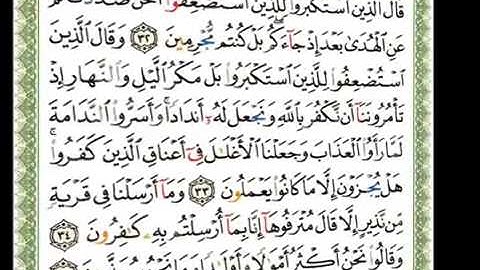 قَالَ ٱلَّذِينَ ٱسْتَكْبَرُوا۟ لِلَّذِينَ ٱسْتُضْعِفُوٓا۟ أَنَحْنُ صَدَدْنَٰكُمْ
عَنِ ٱلْهُدَىٰ بَعْدَ إِذْ جَآءَكُم ۖ بَلْ كُنتُم مُّجْرِمِينَ ٣٢ وَقَالَ ٱلَّذِينَ
ٱسْتُضْعِفُوا۟ لِلَّذِينَ ٱسْتَكْبَرُوا۟ بَلْ مَكْرُ ٱلَّيْلِ وَٱلنَّهَارِ إِذْ
تَأْمُرُونَنَآ أَن نَّكْفُرَ بِٱللَّهِ وَنَجْعَلَ لَهُۥٓ أَندَادًا ۚ وَأَسَرُّوا۟ ٱلنَّدَامَةَ
لَمَّا رَأَوُا۟ ٱلْعَذَابَ وَجَعَلْنَا ٱلْأَغْلَٰلَ فِىٓ أَعْنَاقِ ٱلَّذِينَ كَفَرُوا۟ ۚ
هَلْ يُجْزَوْنَ إِلَّا مَا كَانُوا۟ يَعْمَلُونَ ٣٣ وَمَآ أَرْسَلْنَا فِى قَرْيَةٍ
مِّن نَّذِيرٍ إِلَّا قَالَ مُتْرَفُوهَآ إِنَّا بِمَآ أُرْسِلْتُم بِهِۦ كَٰفِرُونَ ٣٤
وَقَالُوا۟ نَحْنُ أَكْثَرُ أَمْوَٰلًا وَأَوْلَٰدًا وَمَا نَحْنُ بِمُعَذَّبِينَ